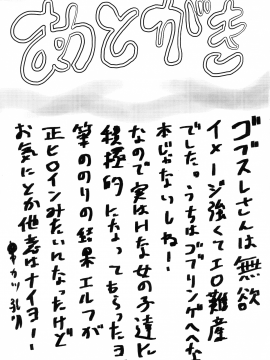 あとがき
ゴブスレさんは無欲
イメージ強くてエロ難産
でした。うちはゴブリンゲヘヘな
本じゃないしねー
なので実はHな女の子達に
積極的になってもらったヨ
筆ののりの結果エルフが
正ヒロインみたいんなったけど
お気にとか他意はナイヨー